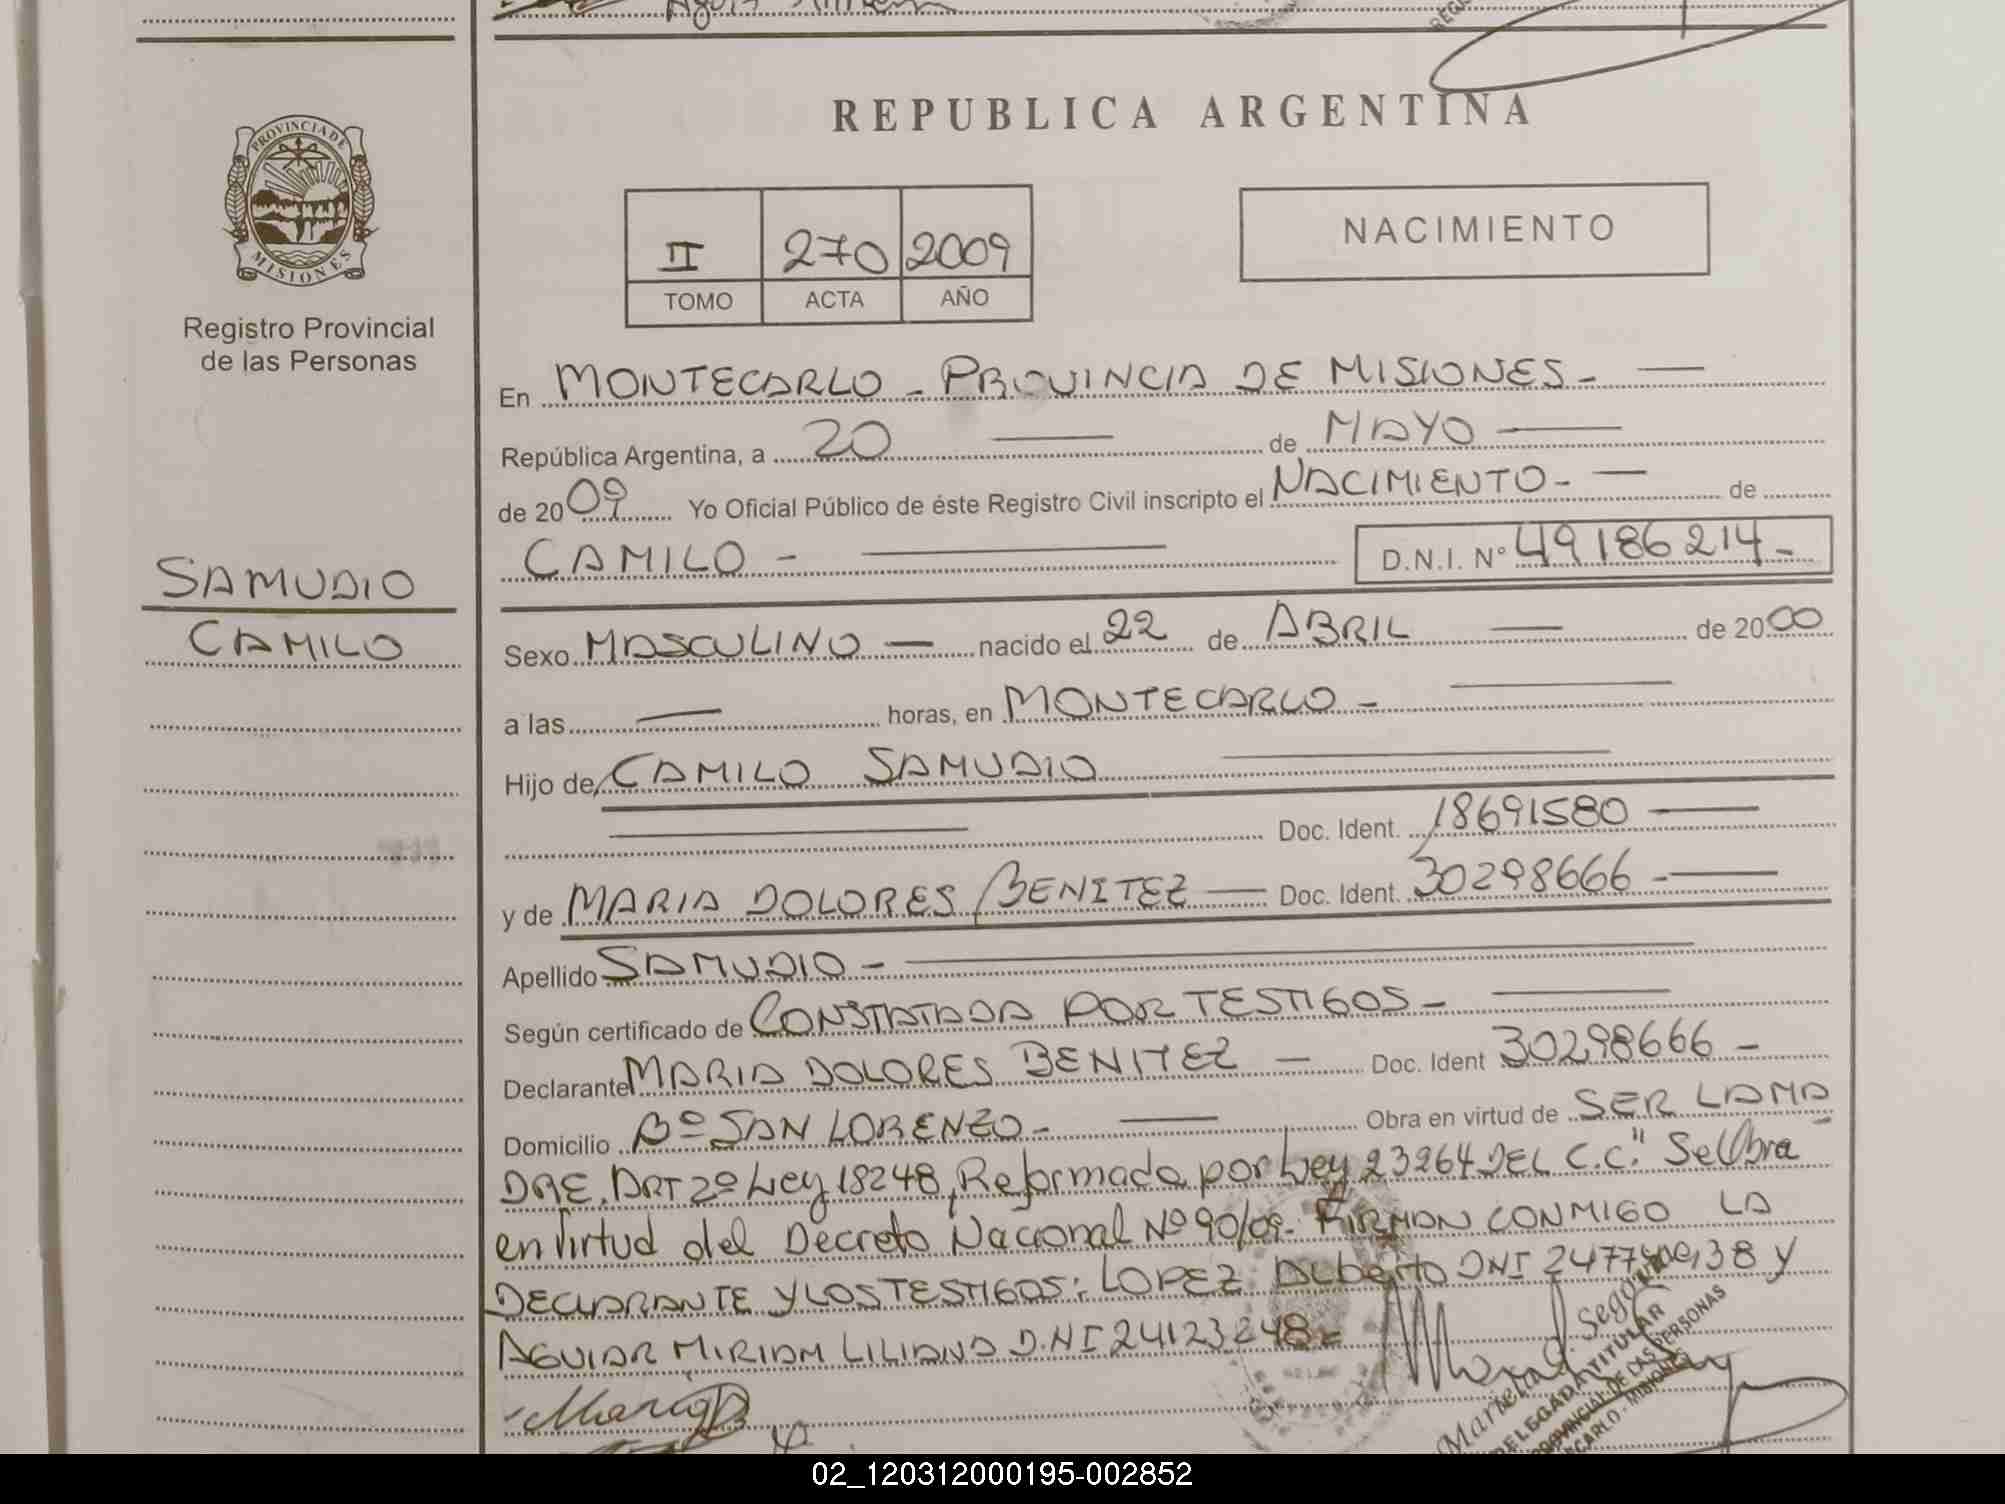 REPUBLICA ARGENTINA
PROVINCIA DE
MISIONES
Registro Provincial
de las Personas
II 270 2009
TOMO ACTA AÑO
NACIMIENTO
En MONTECARLO - PROVINCIA DE MISIONES -
República Argentina, a 20 de MAYO
de 2009 Yo Oficial Público de éste Registro Civil inscripto el NACIMIENTO - de
CAMILO - D.N.I. Nº 49186214 -
SAMUDIO
CAMILO
Sexo MASCULINO nacido el 22 de ABRIL de 2000
a las horas, en MONTECARLO -
Hijo de CAMILO SAMUDIO
Doc. Ident. 18691580
y de MARIA DOLORES BENITEZ Doc. Ident. 30298666 -
Apellido SAMUDIO -
Según certificado de CONSTATADA POR TESTIGOS -
Declarante MARIA DOLORES BENITEZ Doc. Ident 30298666 -
Domicilio Bº SAN LORENZO - Obra en virtud de SER LA MA
DRE. ART 2º Ley 18248, Reformado por Ley 23264 DEL C.C." Se Obra
en virtud del Decreto Nacional Nº 90/09. FIRMAN CONMIGO LA
DECLARANTE Y LOS TESTIGOS: LOPEZ Alberto DNI Y
AGUIAR MIRIAM LILIANA D.NI 24123248
Mariela Segovia
DELEGADA TITULAR
PROVINCIAL DE LAS PERSONAS
MONTECARLO - MISIONES
02_120312000195-002852